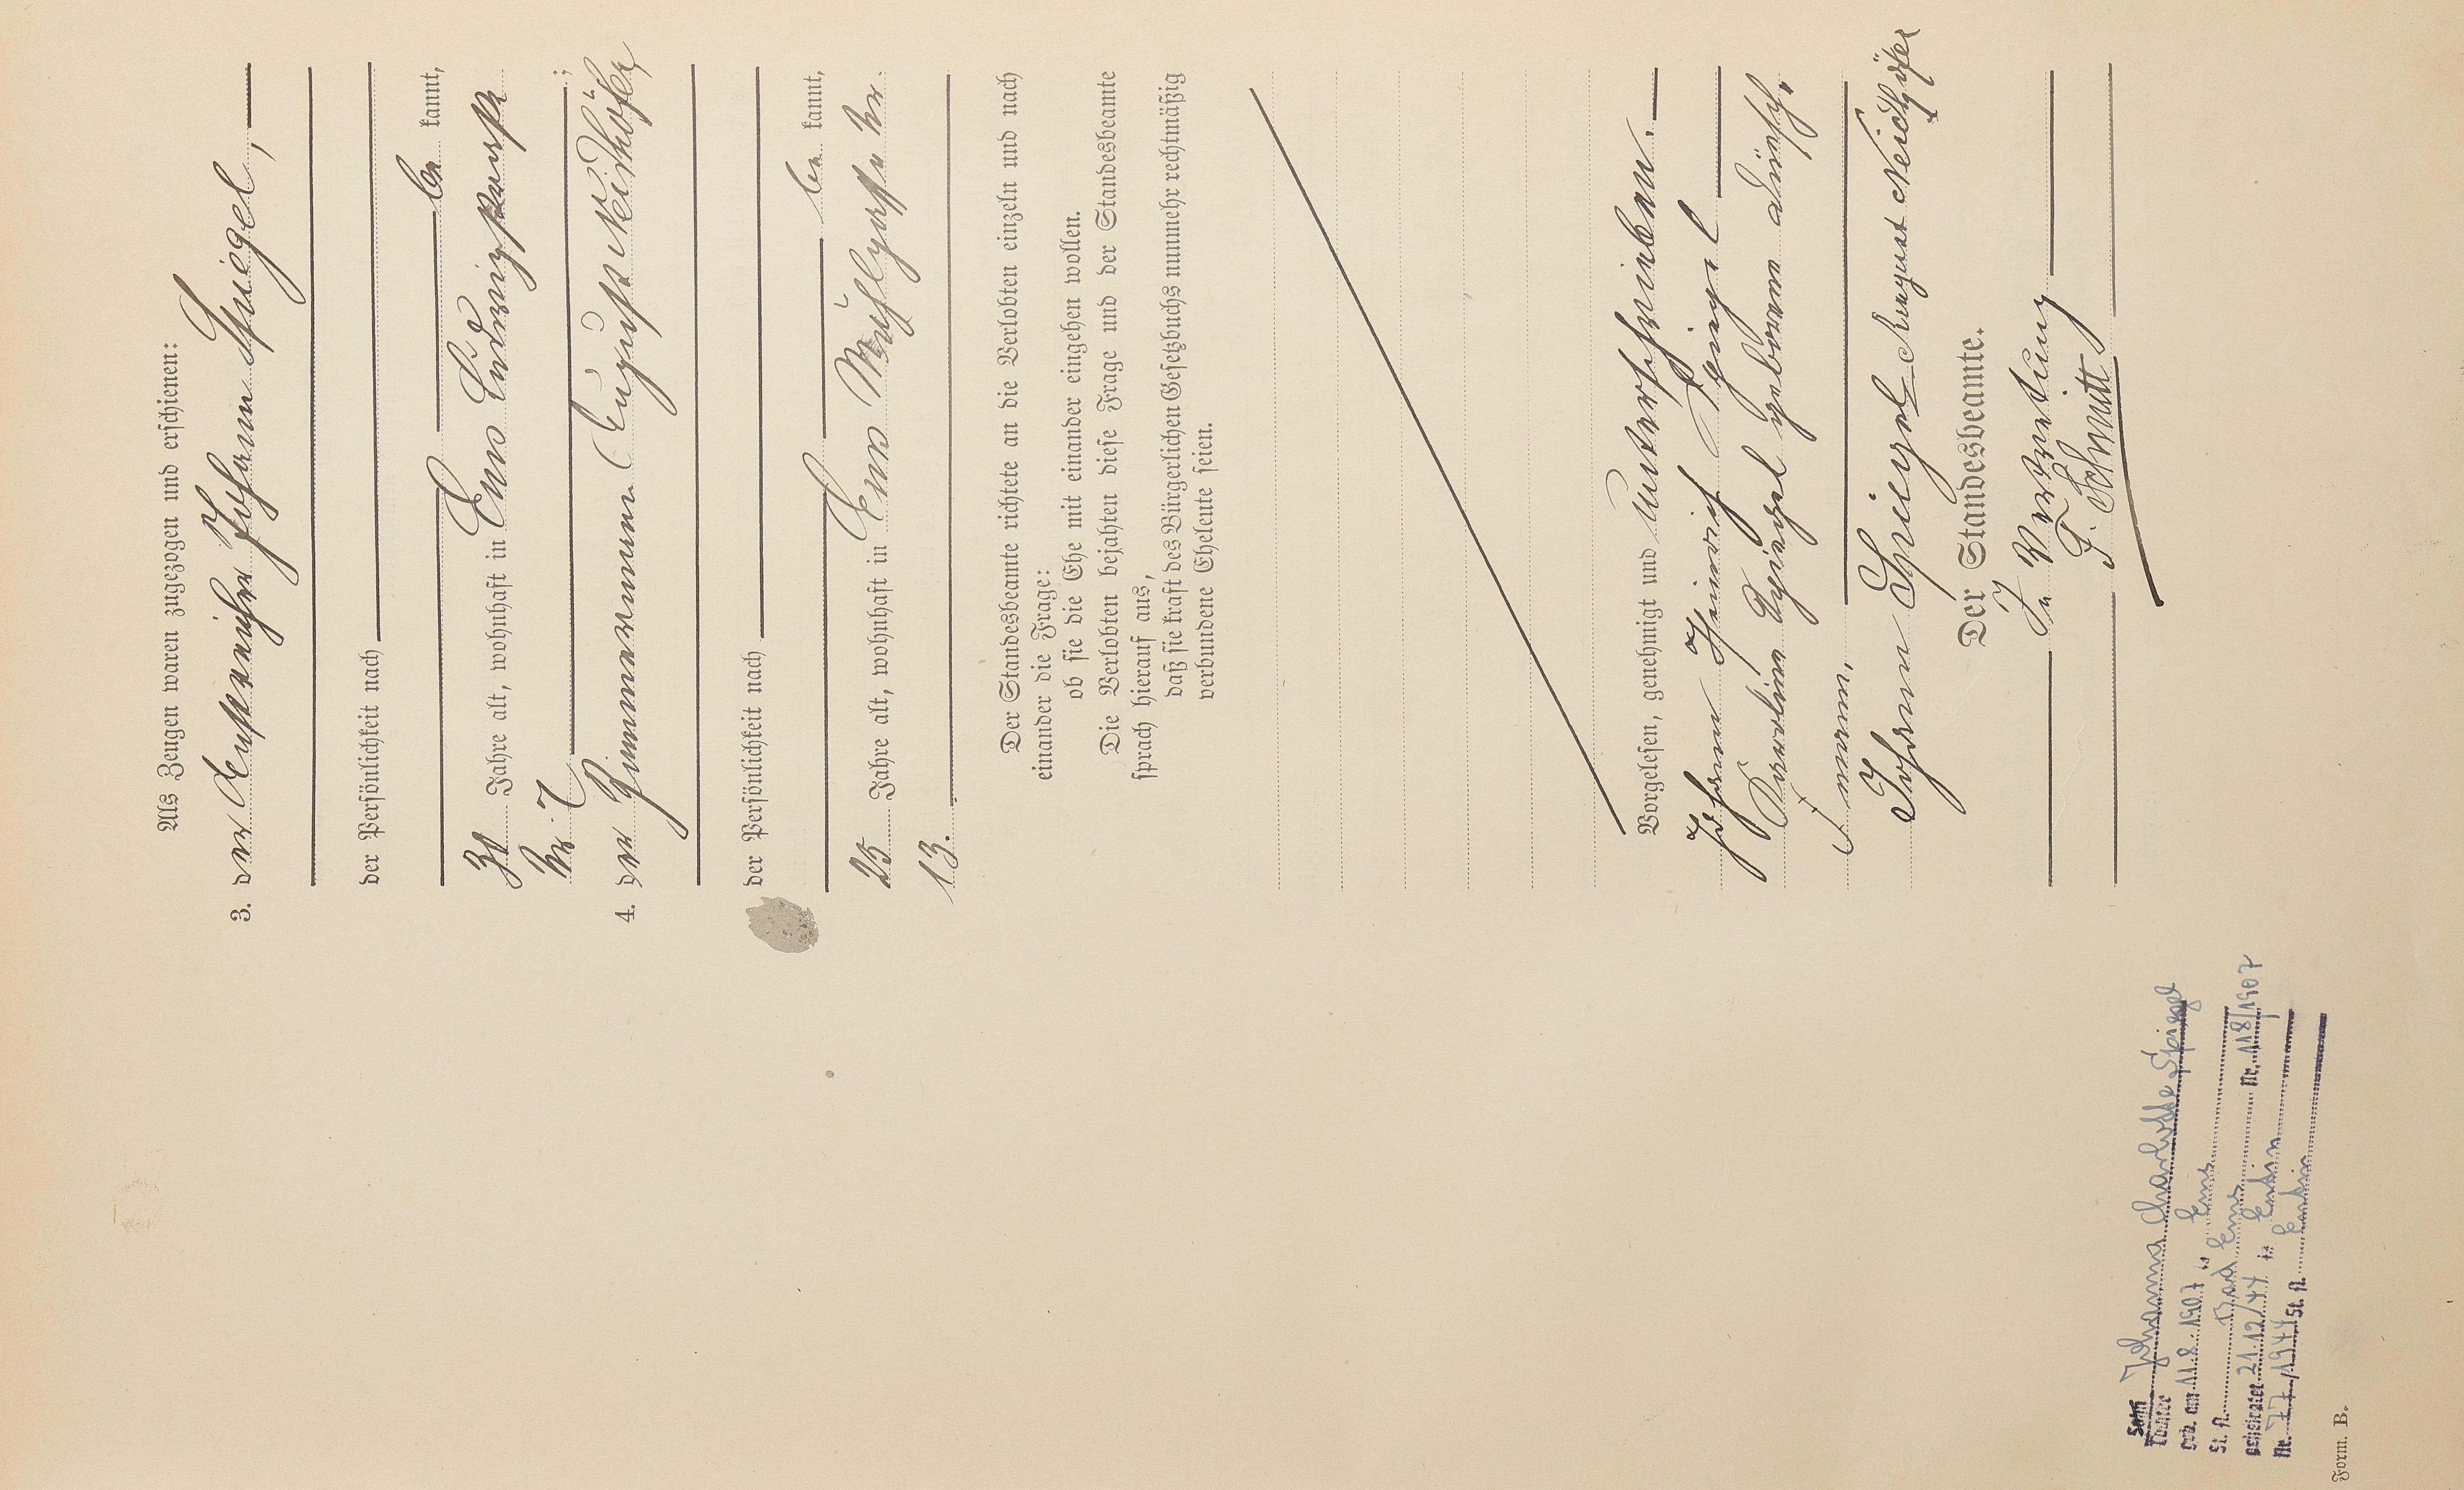 Als Zeugen waren zugezogen und erschienen:
3. der Anstreicher Johann Spiegel,
der Persönlichkeit nach
be kannt,
31 Jahre alt, wohnhaft in Ems Ludwigstraße
Nr. 7 ;
4. der Zimmermann August Neidhöfer
der Persönlichkeit nach
be kannt,
25 Jahre alt, wohnhaft in Ems Nr.
13.
Der Standesbeamte richtete an die Verlobten einzeln und nach
einander die Frage:
ob sie die Ehe mit einander eingehen wollen.
Die Verlobten bejahten diese Frage und der Standesbeamte
sprach hierauf aus,
daß sie kraft des Bürgerlichen Gesetzbuchs nunmehr rechtmäßig
verbundene Eheleute seien.
Vorgelesen, genehmigt und unterschrieben.
Johann Heinrich Spiegel
Karoline Spiegel geborene
Johann Spiegel August Neidhöfer
Der Standesbeamte.
In Vertretung
F. Schmitt
Sohn
Tochter Johanna Charlotte Spiegel
Geb. am 11.8.1907 in Ems
St. A. Bad Ems Nr. 118/1907
geheiratet 21.12/44 in
Nr. 77/1944 St. A.
Form. B.